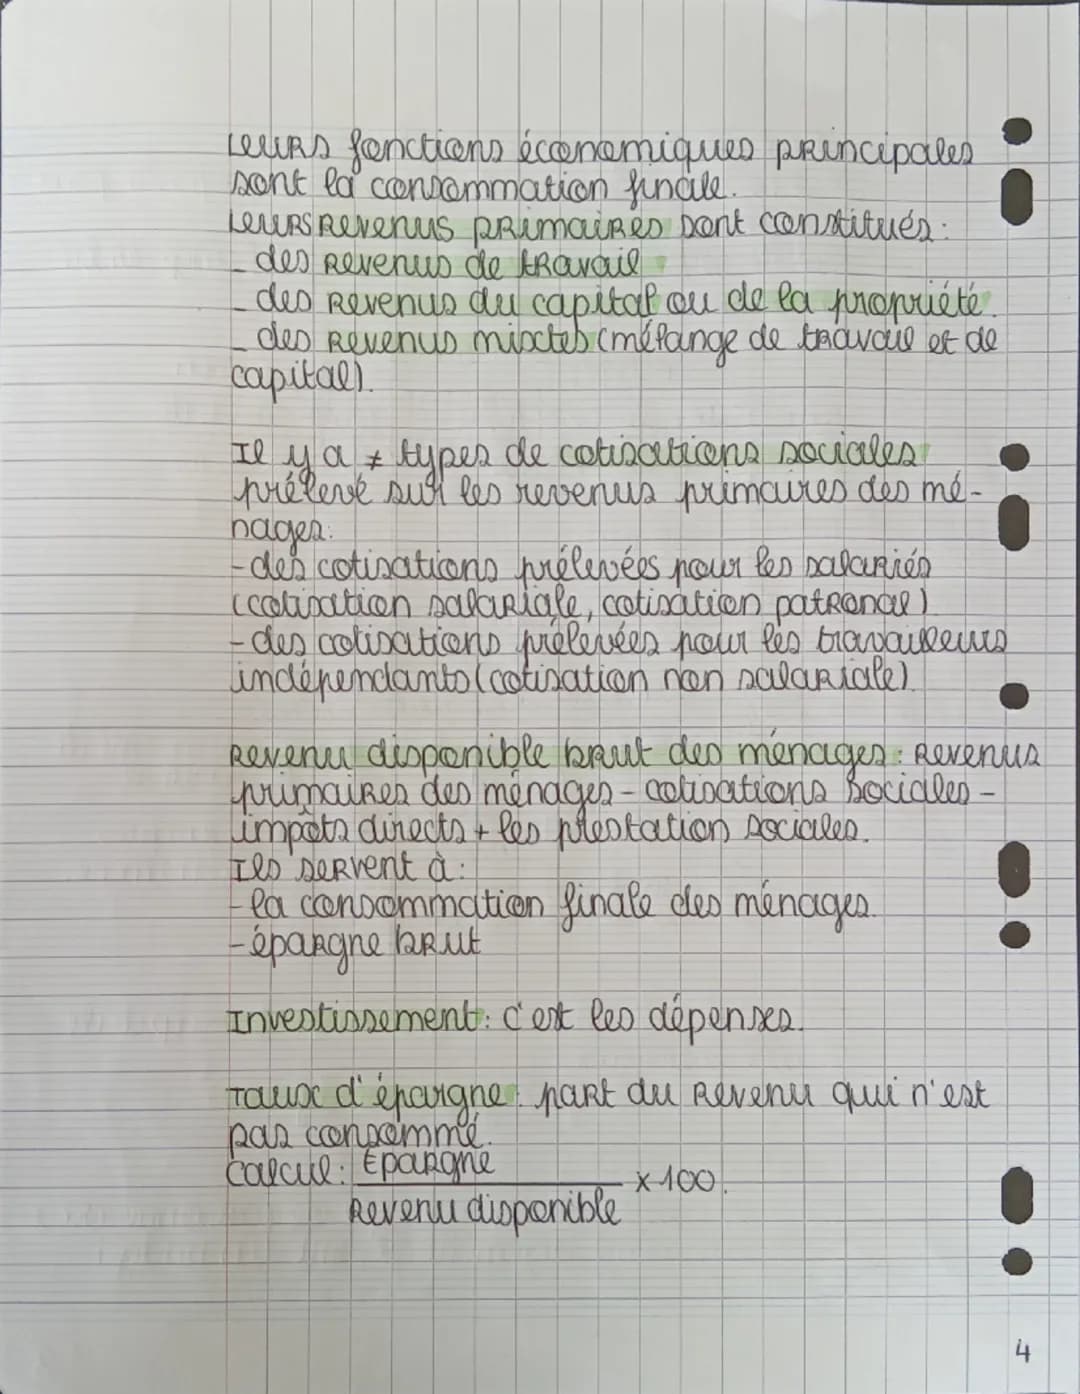 Leurs fonctions économiques principales
sont la consommation finale.
Leurs Revenus primaires sont constitués :
_ des revenus de travail
_ des revenus du capital ou de la propriété.
_ des revenus mixtes (mélange de travail et de
capital).
Il y a ≠ types de cotisations sociales
prélevé sur les revenus primaires des mé-
nages:
- des cotisations prélevées pour les salariés
(cotisation salariale, cotisation patronal)
- des cotisations prélevées pour les travailleurs
indépendants (cotisation non salariale).
Revenu disponible brut des ménages : Revenus
primaires des ménages - cotisations sociales -
impôts directs + les prestation sociales.
Ils servent à :
- la consommation finale des ménages.
- épargne brut
Investissement : c'est les dépenses.
Taux d'épargne : part du revenu qui n'est
pas consommé.
Calcul : Épargne
x 100.
Revenu disponible
4